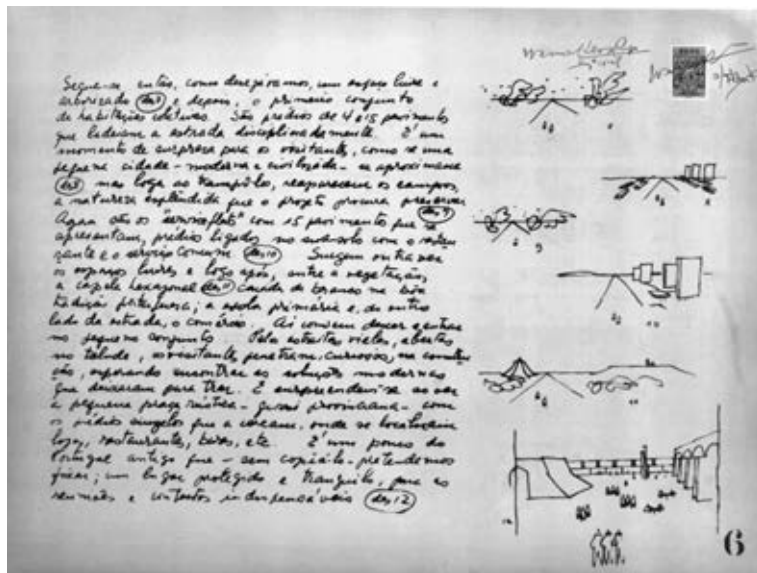 Segue-se, então, como desejávamos, um espaço livre e
arborizado (des 7) e depois, o primeiro conjunto
de habitações coletivas. São prédios de 4 e 15 pavimentos
que ladeiam a estrada disciplinadamente. É um
momento de surpresa para os visitantes, como se uma
pequena cidade - moderna e civilizada - se aproximasse
(des 8) mas logo as reaparecem os campos,
a natureza esplêndida que o projeto procura preservar
(des 9)
Agora são os "service flats" com 15 pavimentos que se
apresentam, prédios ligados no subsolo com o restau-
rante e o serviço comum (des 10) Surgem outra vez
os espaços livres e logo após, entre a vegetação,
a capela hexagonal (des 11) caiada de branco na boa
tradição portuguesa; a escola primária e, do outro
lado da estrada, o comércio. Aí convém descer e entrar
no pequeno conjunto. Pelas estreitas vielas, abertas
no talude, os visitantes penetram, curiosos, na constru-
ção, esperando encontrar as soluções modernas
que deixaram para traz. E surpreendem-se ao ver
a pequena praça rústica - quase provinciana - com
os prédios singelos que a cercam, onde se localizam
lojas, restaurantes, bares, etc. É um pouco do
Portugal antigo que - sem copiá-lo - pretendemos
fixar; um lugar protegido e tranquilo, para as
reuniões e contactos indispensáveis (des 12)
8
9
10
11
12
6